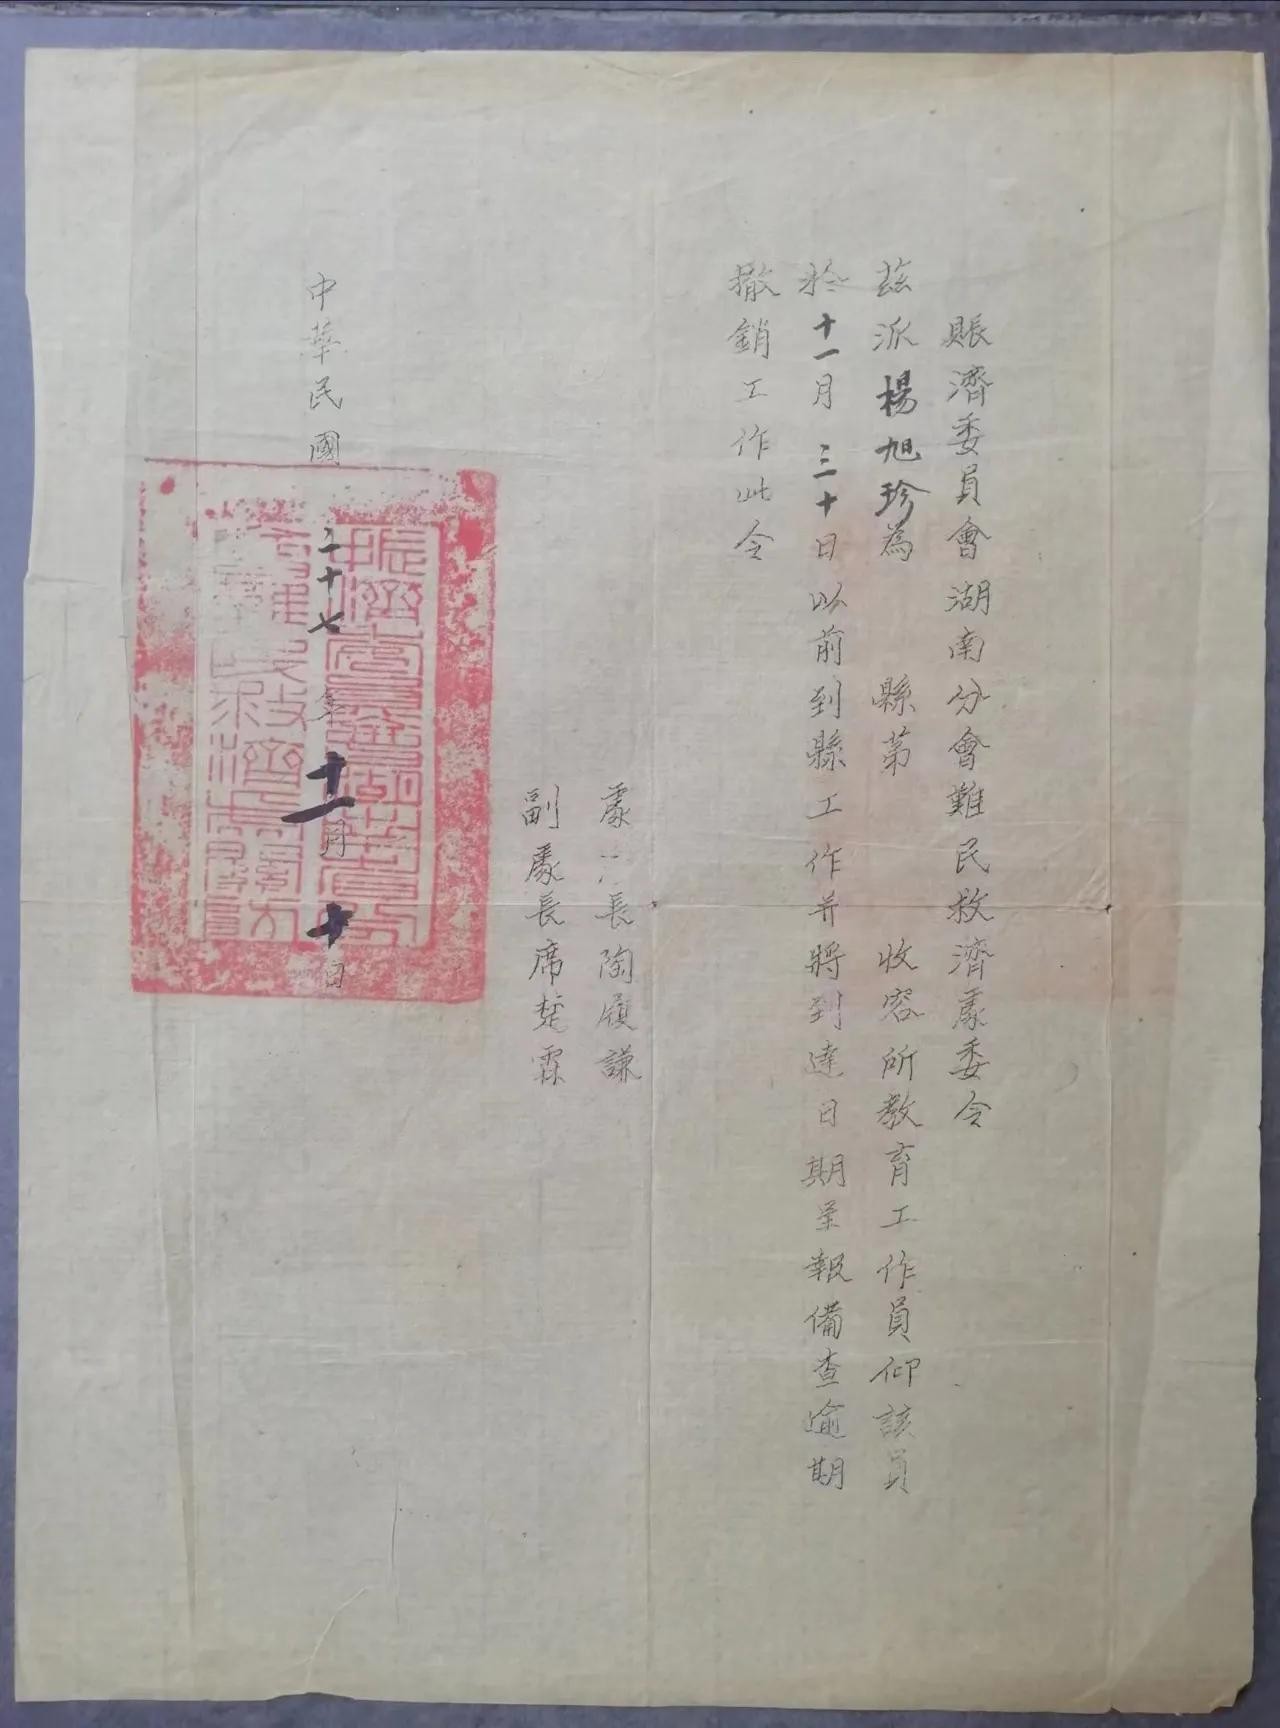 賑濟委員會湖南分會難民救濟處委令
茲派楊旭珍為　縣第　收容所教育工作員仰該員
於十一月三十日以前到縣工作并將到達日期呈報備查逾期
撤銷工作此令
處長陶履謙
副處長席楚霖
中華民國二十七年十一月十日